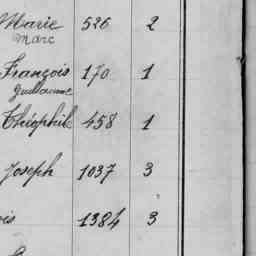 Marie 526 2
Marc
François 170 1
Guillaume
Théophile 458 1
Joseph 1037 3
ois 1384 3